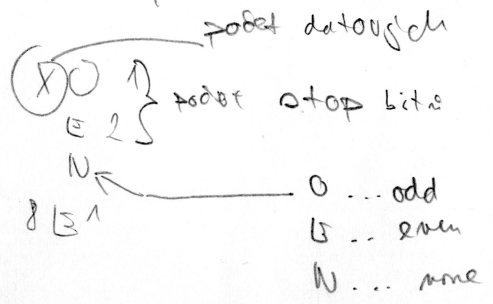 počet datových
X O 1
E 2 } počet stop bitů
N
O ... odd
8 E 1
E .. even
N ... none